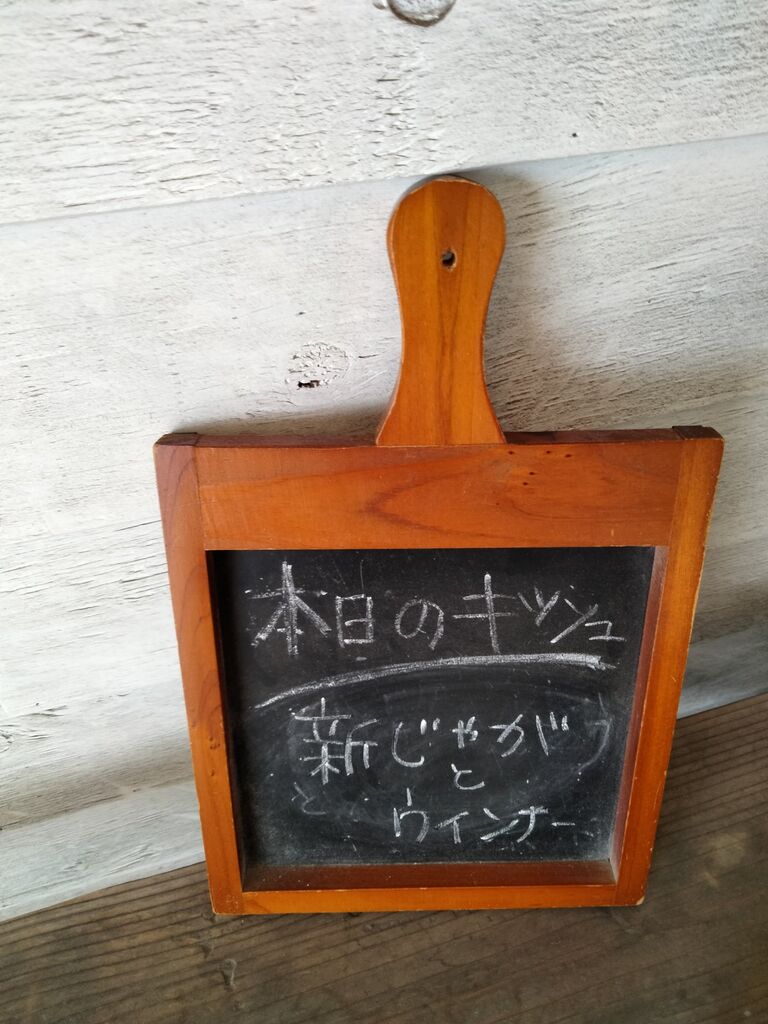 本日のキッシュ
新じゃが
と
ウインナー